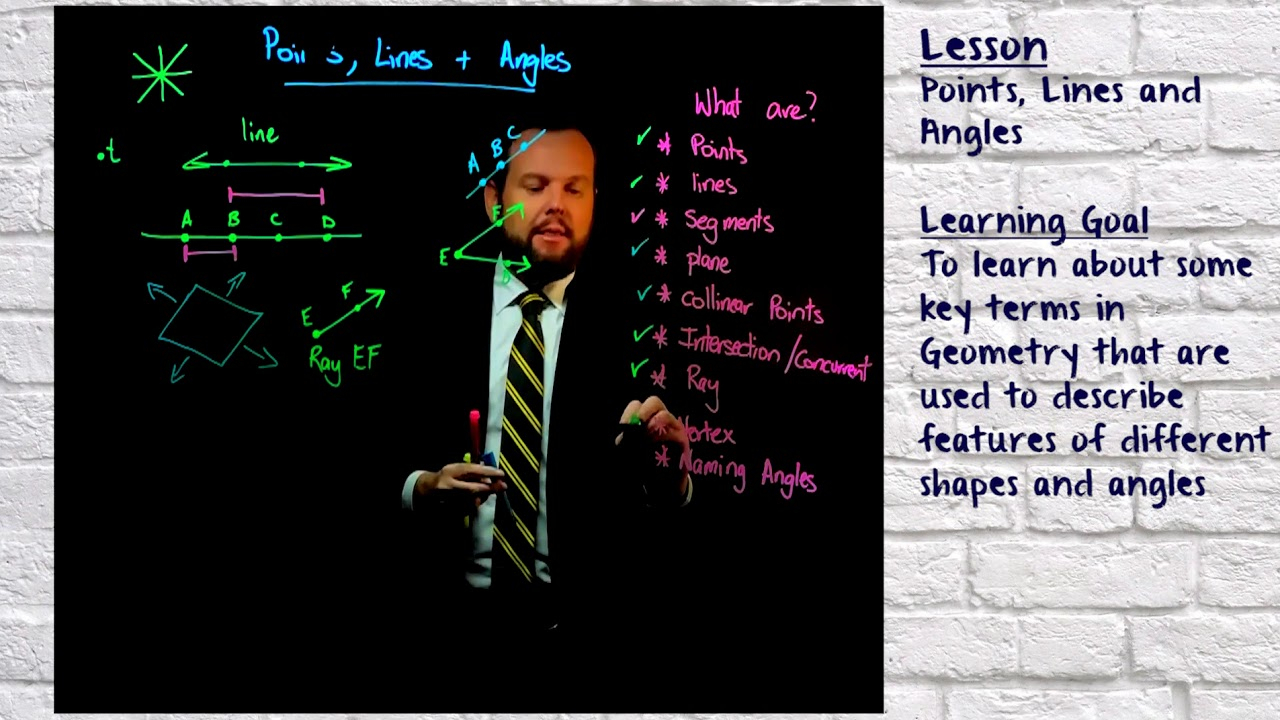 Poi s, Lines + Angles
What are?
✓ * Points
✓ * lines
✓ * Segments
✓ * plane
✓ * Collinear Points
✓ * Intersection/Concurrent
✓ * Ray
* Vertex
* Naming Angles
.t
line
A B C D
E F
Ray EF
A B C
E F D
Lesson
Points, Lines and
Angles
Learning Goal
To learn about some
key terms in
Geometry that are
used to describe
features of different
shapes and angles